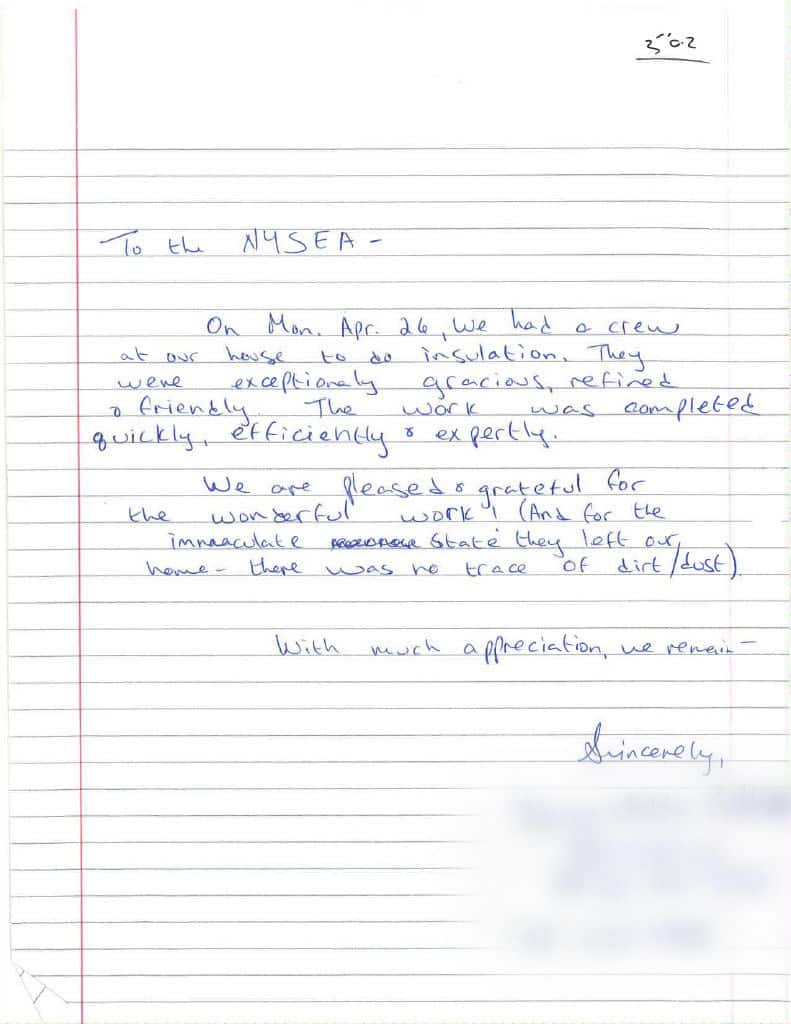 To the NYSEA -
On Mon. Apr. 26, we had a crew
at our house to do insulation. They
were exceptionaly gracious, refined
& friendly. The work was completed
quickly, efficiently & expertly.
We are pleased & grateful for
the wonderful work! (And for the
immaculate state they left our
home - there was no trace of dirt/dust).
With much appreciation, we remain -
Sincerely,